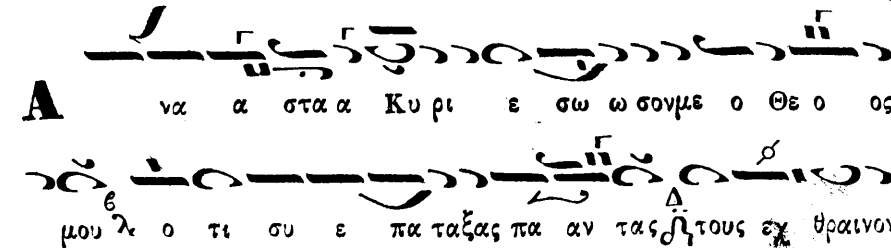 Α να α στα α Κυ ρι ε σω ω σον με ο Θε ο ος
μου ο τι συ ε πα ταξας πα αν τας τους εχ θραινον